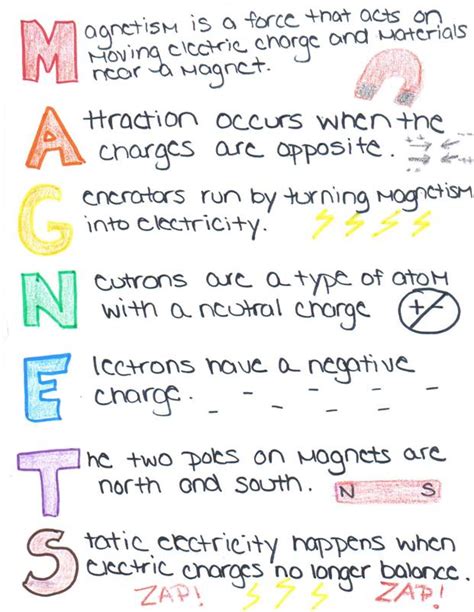 Magnetism is a force that acts on
Moving electric charge and Materials
near a Magnet.
Attraction occurs when the
charges are opposite.
Generators run by turning Magnetism
into electricity.
Neutrons are a type of atom
with a neutral charge
+ -
Electrons have a negative
charge.
The two poles on Magnets are
north and south. N S
Static electricity happens when
electric charges no longer balance.
ZAP! ZAP!